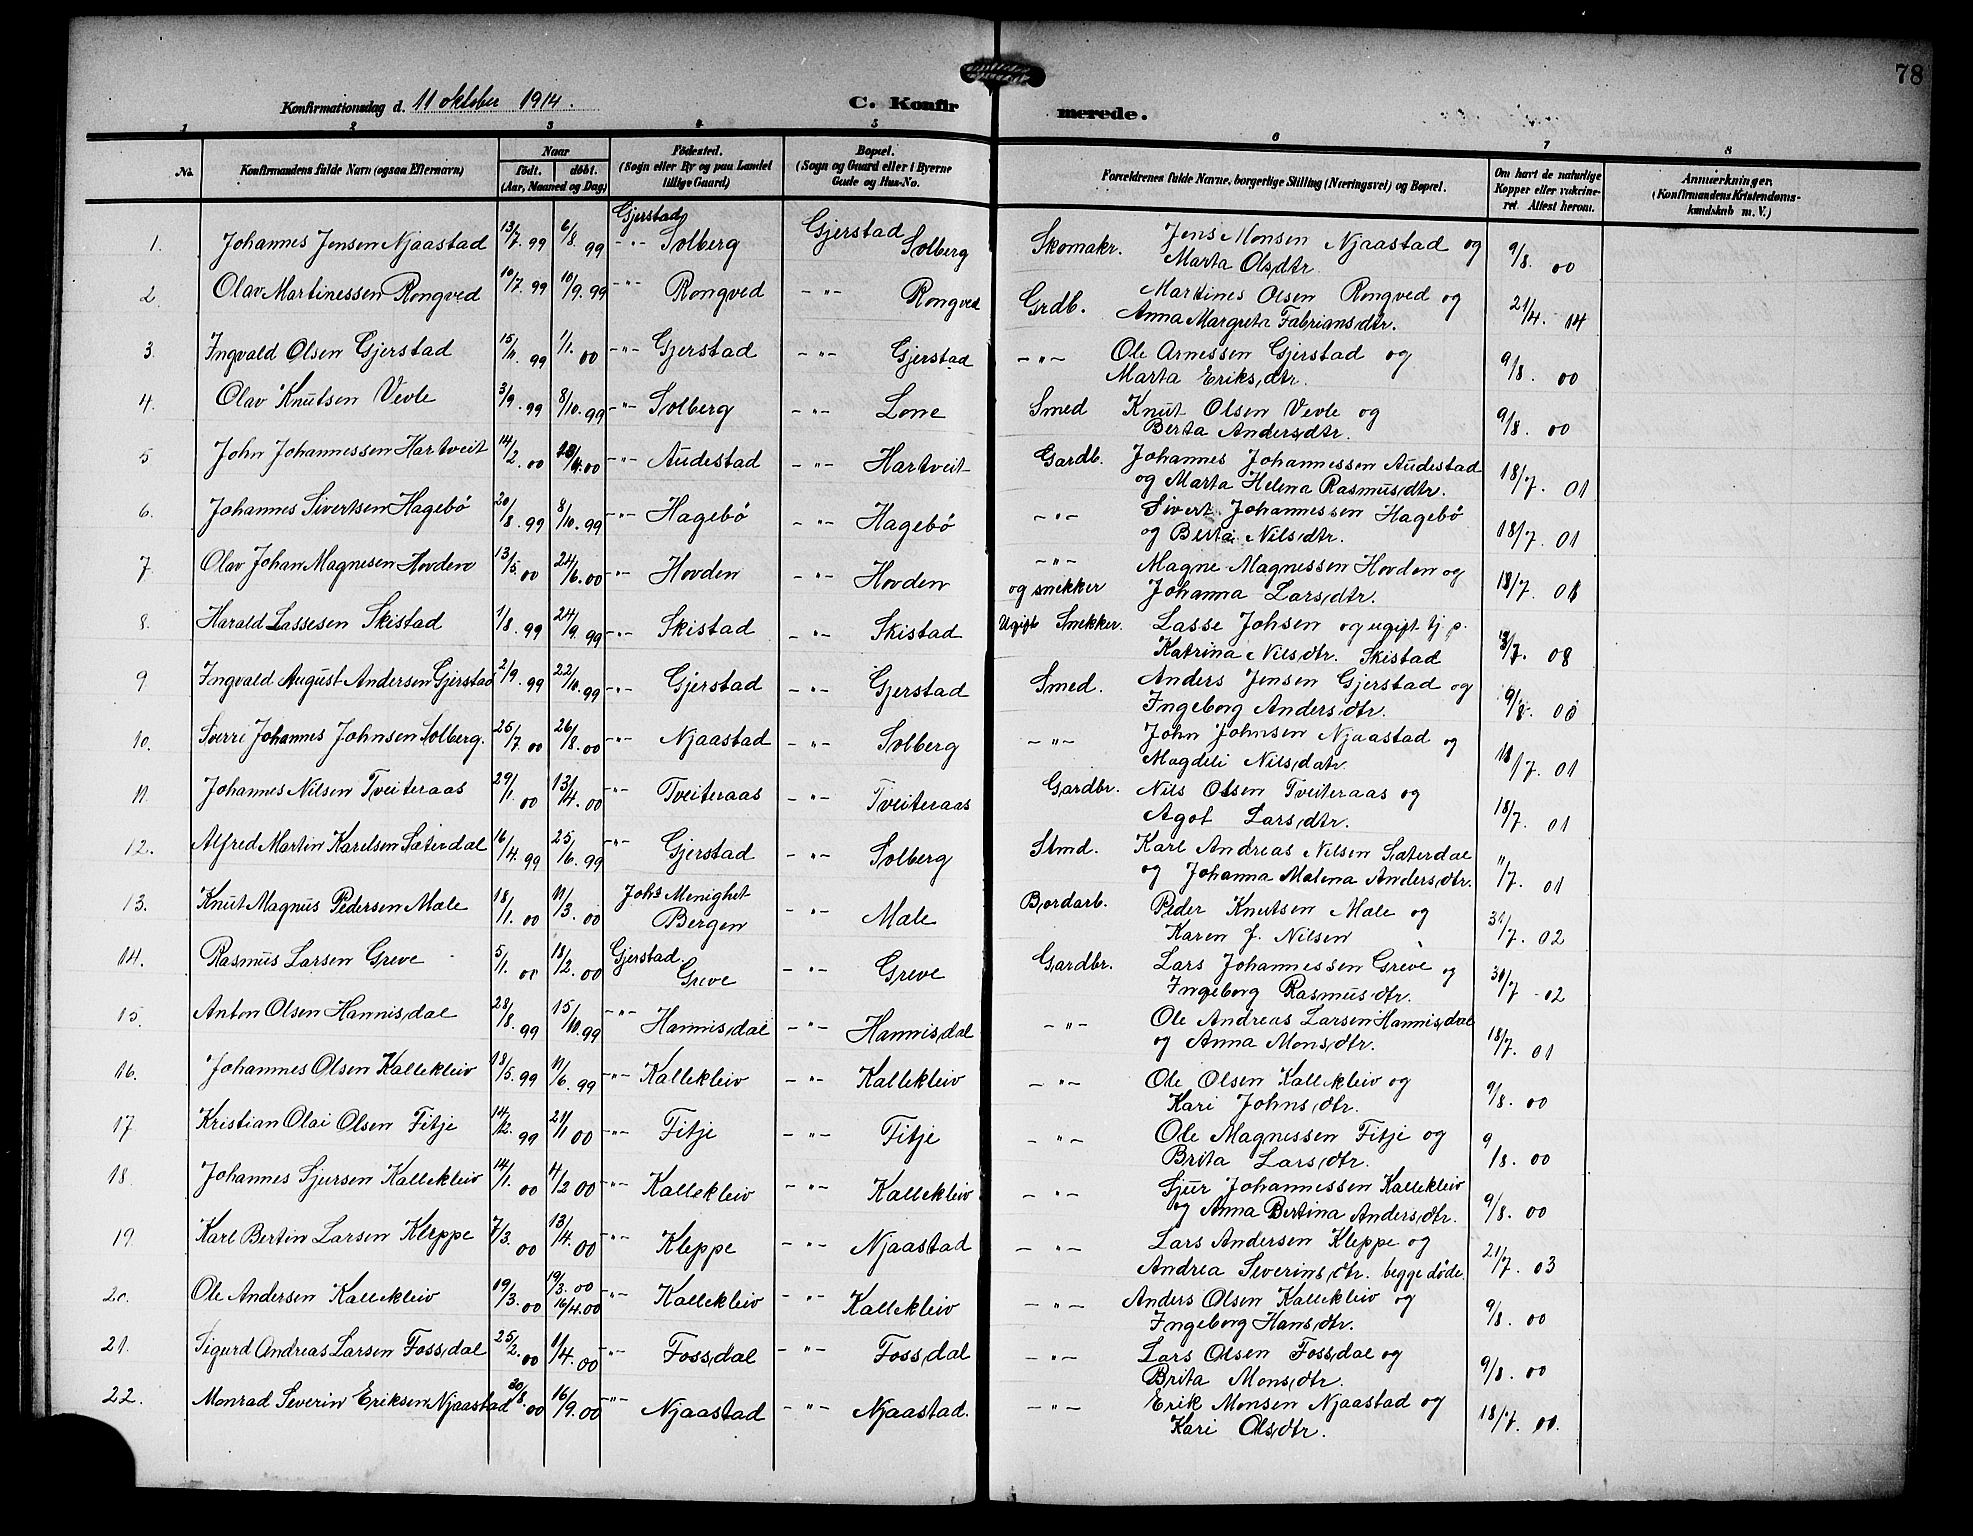 78
Konfirmationsdag d. 11 oktober 1914. C. Konfirmerede.
1 2 3 4 5 6 7 8
No. Konfirmandens fulde Navn (ogsaa Efternavn) Naar født. døbt. (Aar, Maaned og Dag) Fødested. (Sogn eller By og paa Landet tillige Gaard) Bopæl. (Sogn og Gaard eller i Byerne Gade og Hus-No. Forældrenes fulde Navne, borgerlige Stilling (Næringsvei) og Bopæl. Om havt de naturlige Kopper eller vakcineret. Attest herom. Anmærkninger. (Konfirmandens Kristendomskundskab m. V.)
1. Johannes Jensen Njaastad 13/7. 99 6/8. 99 Gjerstad Solberg Gjerstad Solberg Skomakr. Jens Monsen Njaastad og
Marta Olsdtr. 9/8. 00
2 Olav Martinessen Rongved 10/7. 99 10/9. 99 -"- Rongved -"- Rongved Grdb. Martines Olsen Rongved og
Anna Margreta Fabriansdtr. 21/4. 14
3. Ingvald Olsen Gjerstad 15/11. 99 1/1. 00 -"- Gjerstad -"- Gjerstad -"- Ole Arnessen Gjerstad og
Marta Eriksdtr. 9/8. 00
4. Olav Knutsen Vevle 3/9. 99 8/10. 99 -"- Solberg -"- Lone Smed Knut Olsen Vevle og
Berta Andersdtr. 9/8. 00
5 John Johannessen Hartveit 14/2. 00 /4. 00 -"- Audestad -"- Hartveit Gardb. Johannes Johannessen Audestad
og Marta Helena Rasmusdtr. 18/7. 01
6. Johannes Sivertsen Hagebø 20/8. 99 8/10. 99 -"- Hagebø -"- Hagebø -"- Sivert Johannessen Hagebø
og Berta Nilsdtr. 18/7. 01
7. Olav Johan Magnesen Hovden 13/5. 00 24/6. 00 -"- Hovden -"- Hovden -"- Magne Magnessen Hovden og
og snekker Johanna Larsdtr. 18/7. 01
8. Harald Lassesen Skistad 1/8. 99 24/9. 99 -"- Skistad -"- Skistad Ugift Snekker. Lasse Johsen og ugift tj. p.
Katrina Nilsdtr. Skistad /7. 08
9 Ingvald August Andersen Gjerstad 2/9. 99 22/10. 99 -"- Gjerstad -"- Gjerstad Smed. Anders Jensen Gjerstad og
Ingeborg Andersdtr. 9/8. 00
10. Sverri Johannes Johnsen Solberg. 25/7. 00 26/8. 00 -"- Njaastad -"- Solberg -"- John Johnsen Njaastad og
Magdeli Nilsdatr. 18/7. 01
11. Johannes Nilsen Tveiteraas 29/1. 00 13/4. 00 -"- Tveiteraas -"- Tveiteraas Gardbr. Nils Olsen Tveiteraas og
Agot Larsdtr. 18/7. 01
12. Alfred Martin Karelsen Sæterdal 16/4. 99 25/6. 99 -"- Gjerstad -"- Solberg Stmd. Karl Andreas Nilsen Sæterdal
og Johanna Malena Andersdtr. 11/7. 01
13. Knut Magnus Pedersen Male 18/1. 00 11/3. 00 Johs Menighet Bergen -"- Male Bordarb. Peder Knutsen Male og
Karen J. Nilsen 31/7. 02
14. Rasmus Larsen Greve 5/1. 00 18/2. 00 Gjerstad. Greve -"- Greve Gardbr. Lars Johannessen Greve og
Ingeborg Rasmusdtr. 30/7 -02
15. Anton Olsen Hannisdal 28/8. 99 15/10. 99 -"- Hannisdal -"- Hannisdal -"- Ole Andreas Larsen Hannisdal
og Anna Monsdtr. 18/7. 01
16. Johannes Olsen Kallekleiv 13/5. 99 11/6. 99 -"- Kallekleiv -"- Kallekleiv -"- Ole Olsen Kallekleiv og
Kari Johnsdtr. 9/8. 00
17. Kristian Olai Olsen Fitje 14/12. 99 21/1 00 -"- Fitje -"- Fitje -"- Ole Magnessen Fitje og
Brita Larsdtr. 9/8. 00
18. Johannes Sjursen Kallekleiv 14/1. 00 4/2 00 -"- Kallekleiv -"- Kallekleiv -"- Sjur Johannessen Kallekleiv
og Anna Bertina Andersdtr. 9/8. 00
19 Karl Bertin Larsen Kleppe 7/3. 00 13/4. 00 -"- Kleppe -"- Njaastad -"- Lars Andersen Kleppe og
Andrea Severinsdtr. begge døde. 21/7. 03
20. Ole Andersen Kallekleiv 19/3. 00 19/3. 00 16/4. 00 -"- Kallekleiv -"- Kallekleiv -"- Anders Olsen Kallekleiv og
Ingeborg Hansdtr. 9/8. 00
21. Sigurd Andreas Larsen Fossdal 25/2. 00 11/4. 00 -"- Fossdal -"- Fossdal -"- Lars Olsen Fossdal og
Brita Monsdtr. 9/8. 00
22. Monrad Severin Eriksen Njaastad 30/8. 00 16/9. 00 -"- Njaastad -"- Njaastad. -"- Erik Monsen Njaastad og
Kari Olsdtr. 18/7. 00.